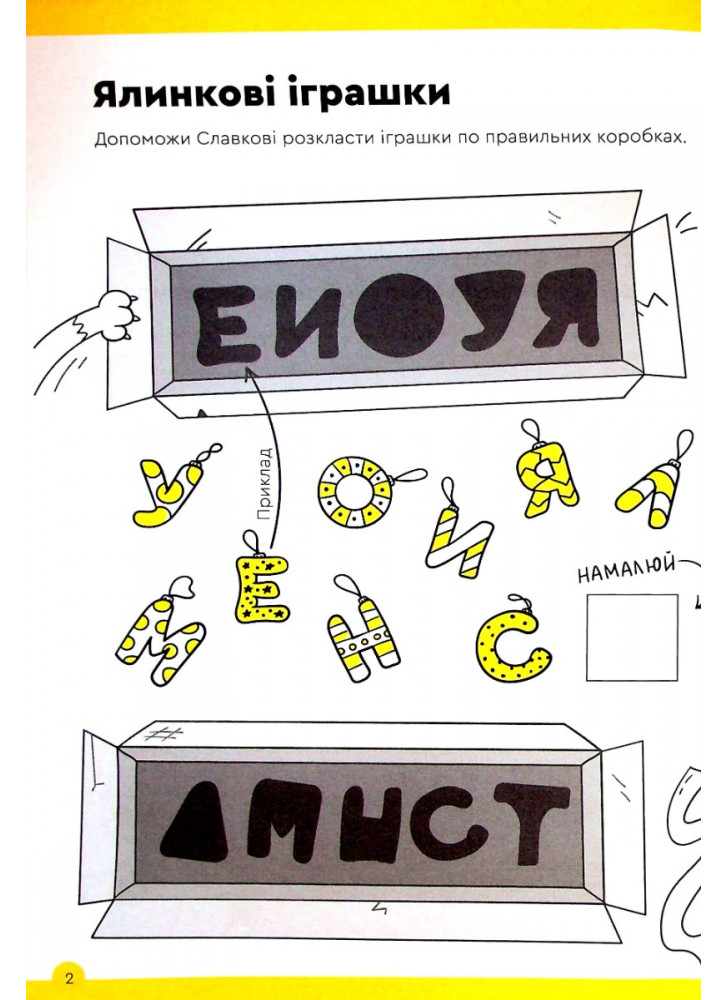 Ялинкові іграшки
Допоможи Славкові розкласти іграшки по правильних коробках.
Е И О У Я
Приклад
У О И Я Л
Е
НАМАЛЮЙ
М Н С
Л М Н С Т
2